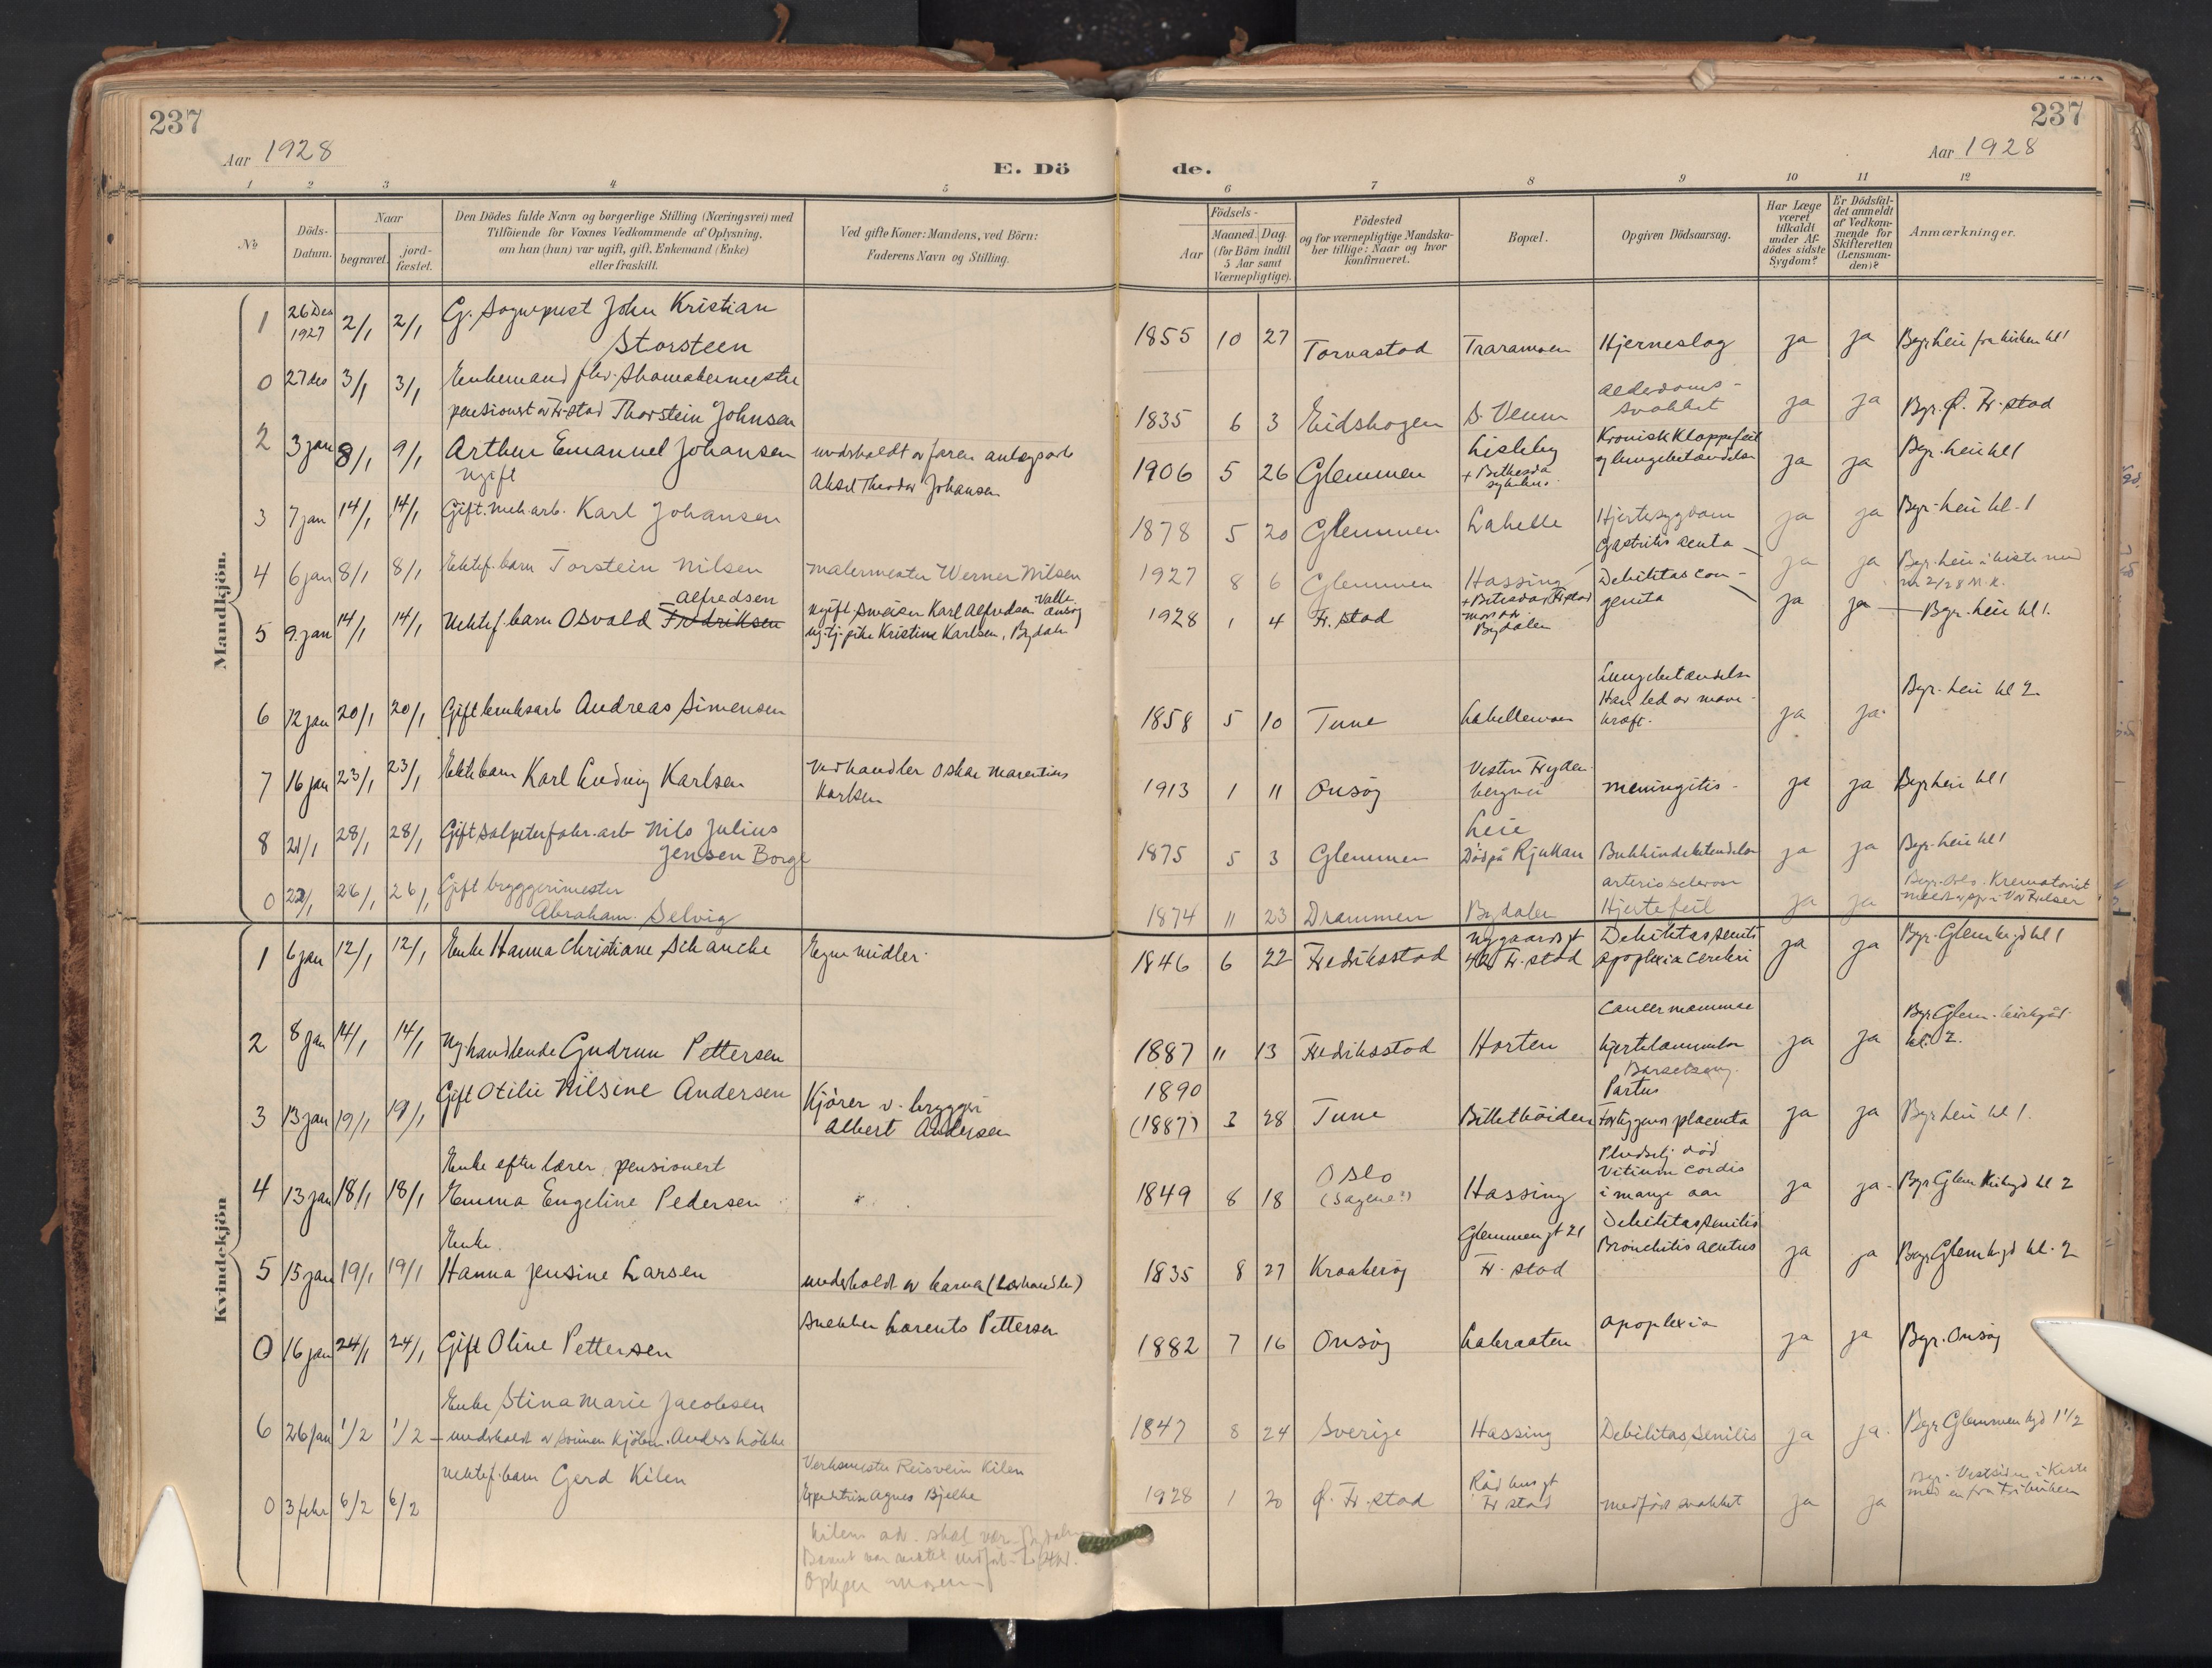 237
Aar 1928
E. Dö
de.
237
Aar 1928
1 2 3 4 5 6 7 8 9 10 11 12
No
Döds-Datum.
Naar
begravet.
jord-fæstet.
Den Dödes fulde Navn og borgerlige Stilling (Næringsvei) med
Tilföiende for Voxnes Vedkommende af Oplysning,
om han (hun) var ugift, gift, Enkemand (Enke)
eller fraskilt.
Ved gifte Koner: Mandens, ved Börn:
Faderens Navn og Stilling.
Födsels-
Aar
Maaned. Dag.
(for Börn indtil
5 Aar samt
Værnepligtige).
Födested
og for værnepligtige Mandska-
ber tillige: Naar og hvor
konfirmeret.
Bopæl.
Opgiven Dödsaarsag.
Har Læge
været
tilkaldt
under Af-
dödes sidste
Sygdom?
Er Dödsfal-
det anmeldt
af Vedkom-
mende for
Skifteretten
(Lensman-
den)?
Anmærkninger.
Mandkjön.
1 26 Des 1927 2/1 2/1 G. Sogneprest John Kristian
Storsteen
1855 10 27 Torvastad Traramoen Hjerneslag ja ja Begr. Leie fra kirken kl 1
0 27 des 3/1 3/1 Enkemand fhv. skomakermester
pensionert av Fr.stad Thorstein Johnsen
1835 6 3 Eidskogen S. Veum Alderdoms-
svakhet ja ja Begr. Ø. Fr.stad
2 3 jan 8/1 9/1 Arthur Emanuel Johansen
ugift
underholdt av faren anlægsarb
Aksel Theodor Johansen
1906 5 26 Glemmen Lisleby
+ Bethesda
sykehus.
Kronisk Klappefeil
og lungebetændelse ja ja Begr. Leie kl 1
3 7 jan 14/1 14/1 Gift. mek. arb. Karl Johansen
1878 5 20 Glemmen Lahelle Hjertesygdom ja ja Begr. Leie kl. 1
4 6 jan 8/1 8/1 Ektef. barn Torstein Nilsen
Malermester Werner Nilsen
1927 8 6 Glemmen Hassing Gastritis acuta ja ja Begr. Leie i kiste med
nr 2/28 M.K.
5 9. jan 14/1 14/1 Uektef. barn Osvald Fredriksen
Alfredsen
ugift sveiser Karl Alfredsen Valle Onsøy
ug. tj. pike Kristine Karlsen, Bydalen
1928 1 4 Fr. stad + Betesda, Fr.stad
Bydalen
Debilitas con-
genita ja ja Begr. Leie kl 1.
6 12 jan 20/1 20/1 Gift bruksarb Andreas Simensen
1858 5 10 Tune Lahellemoen Lungebetændelse
Han led av mave-
kræft. ja ja Begr. Leie kl 2
7 16 jan 23/1 23/1 Ekte barn Karl Ludvig Karlsen
Vedhandler Oskar Marentius
Karlsen
1913 1 11 Onsøy Vestre Fryden-
bergvei meningitis ja ja Begr Leie kl 1
8 21/1 28/1 28/1 Gift salpeterfabr. arb Nils Julius
Jensen Borge
1875 5 3 Glemmen Leie
Död på Rjukan Bukhindebetendelse ja ja Begr. Leie kl 1
0 22/1 26/1 26/1 Gift bryggerimester
Abraham Selvig
1874 11 23 Drammen Bydalen arteriosclerose
Hjertefeil ja ja Begr. Oslo. Krematoriet
Kvindekjön
1 6 jan 12/1 12/1 Enke Hanna Christiane Schancke
Egne midler.
1846 6 22 Fredriksstad Nygaardsgt
Fr. stad Debilitas senilis
apoplexia cerebri ja ja Begr. Glem kgd kl 1
2 8 jan 14/1 14/1 Ug. handlende Gudrun Pettersen
1887 11 13 Fredriksstad Horten Cancer mammae
hjertelammelse ja ja Begr Glem. kirkegård
kl. 2.
3 13 jan 19/1 19/1 Gift Otilie Nilsine Andersen
Kjörer v. bryggeri
Albert Andersen
1890
(1887) 3 28 Tune Billethöiden Barselseng.
Partus
placenta ja ja Begr Leie kl 1.
4 13 jan 18/1 18/1 Enke efter lærer, pensionert
Emma Engeline Pedersen
1849 8 18 Oslo
(Sagene?) Hassing Pludselig död
Vitium cordis
i mange aar ja ja Begr Glem kirkegd kl 2
5 15 jan 19/1 19/1 Enke
Hanna Jensine Larsen
underholdt av barna
1835 8 27 Kraakerøy Glemmengt 21
Fr. stad Debilitas senilis
Bronchitis acutus ja ja Begr Glem kgd kl. 2
0 16 jan 24/1 24/1 Gift Oline Pettersen
snekker Lorents Pettersen
1882 7 16 Onsøy Labraaten apoplexia ja ja Begr. Onsøy
6 26 jan 1/2 1/2 Enke Stina Marie Jacobsen
underholdt av sønnen kjøbm. Anders Løkke
1847 8 24 Sverige Hassing Debilitas senilis ja ja Begr Glemmen kgd 1 1/2
0 3 febr 6/2 6/2 Uektef. barn Gerd Kilen
Verksmester Reisvein Kilen
Agnes Bjelke
1928 1 20 Ø. Fr. stad Rådhusgt
Fr stad medfød svakhet ja ja Begr. Vestsiden i kiste
med en fra